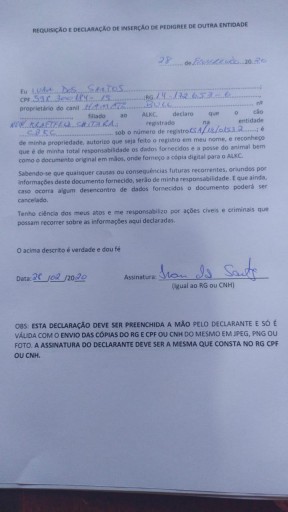 REQUISIÇÃO E DECLARAÇÃO DE INSERÇÃO DE PEDIGREE DE OUTRA ENTIDADE
28 de Fevereiro de 2020
Eu LUAN DOS SANTOS
CPF RG
proprietário do canil HULK, nº
filiado ao ALKC, declaro que o cão
registrado na entidade
CBKC sob o numero de registro ; é
de minha propriedade, autorizo que seja feito o registro em meu nome, e reconheço
que é de minha total responsabilidade os dados fornecidos e a posse do animal bem
como o documento original em mãos, onde forneço a cópia digital para o ALKC.
Sabendo-se que quaisquer causas ou consequências futuras recorrentes, oriundos por
informações deste documento fornecido, serão de minha responsabilidade. E que ainda,
caso ocorra algum desencontro de dados fornecidos o documento poderá ser
cancelado.
Tenho ciência dos meus atos e me responsabilizo por ações cíveis e criminais que
possam recorrer sobre as informações aqui declaradas.
O acima descrito é verdade e dou fé
Data: 28 /02 /2020 Assinatura: Luan dos Santos
(Igual ao RG ou CNH)
OBS: ESTA DECLARAÇÃO DEVE SER PREENCHIDA A MÃO PELO DECLARANTE E SÓ É
VÁLIDA COM O ENVIO DAS CÓPIAS DO RG E CPF OU CNH DO MESMO EM JPEG, PNG OU
FOTO. A ASSINATURA DO DECLARANTE DEVE SER A MESMA QUE CONSTA NO RG CPF
OU CNH.